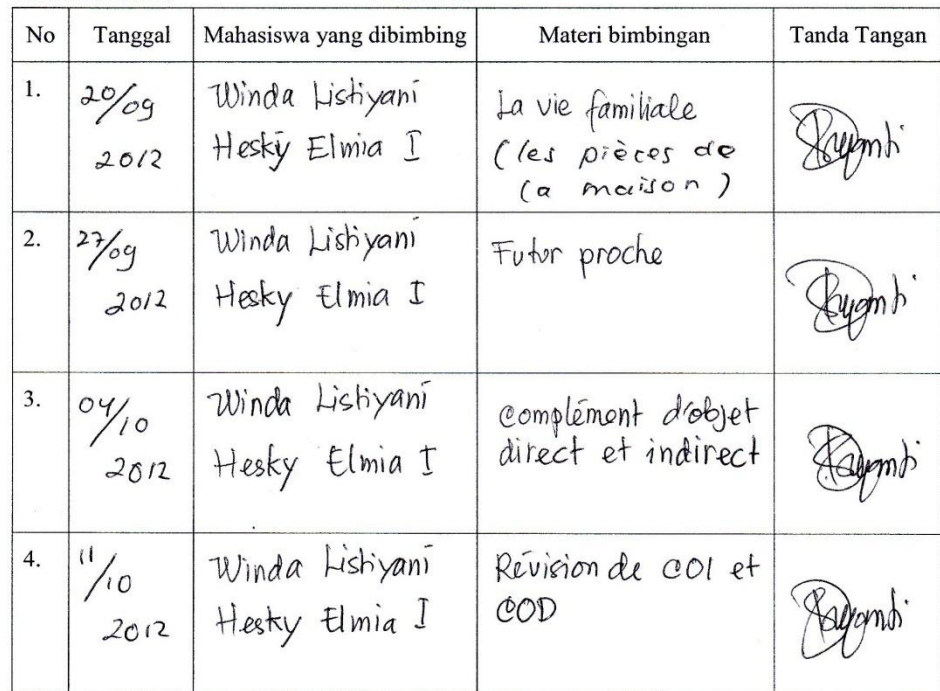 No Tanggal Mahasiswa yang dibimbing Materi bimbingan Tanda Tangan
1. 20/09 2012
Winda Listiyani
Hesky Elmia I
La vie familiale
(les pièces de
la maison)
2. 27/09 2012
Winda Listiyani
Hesky Elmia I
Futur proche
3. 04/10 2012
Winda Listiyani
Hesky Elmia I
Complément d'objet
direct et indirect
4. 11/10 2012
Winda Listiyani
Hesky Elmia I
Révision de COI et
COD